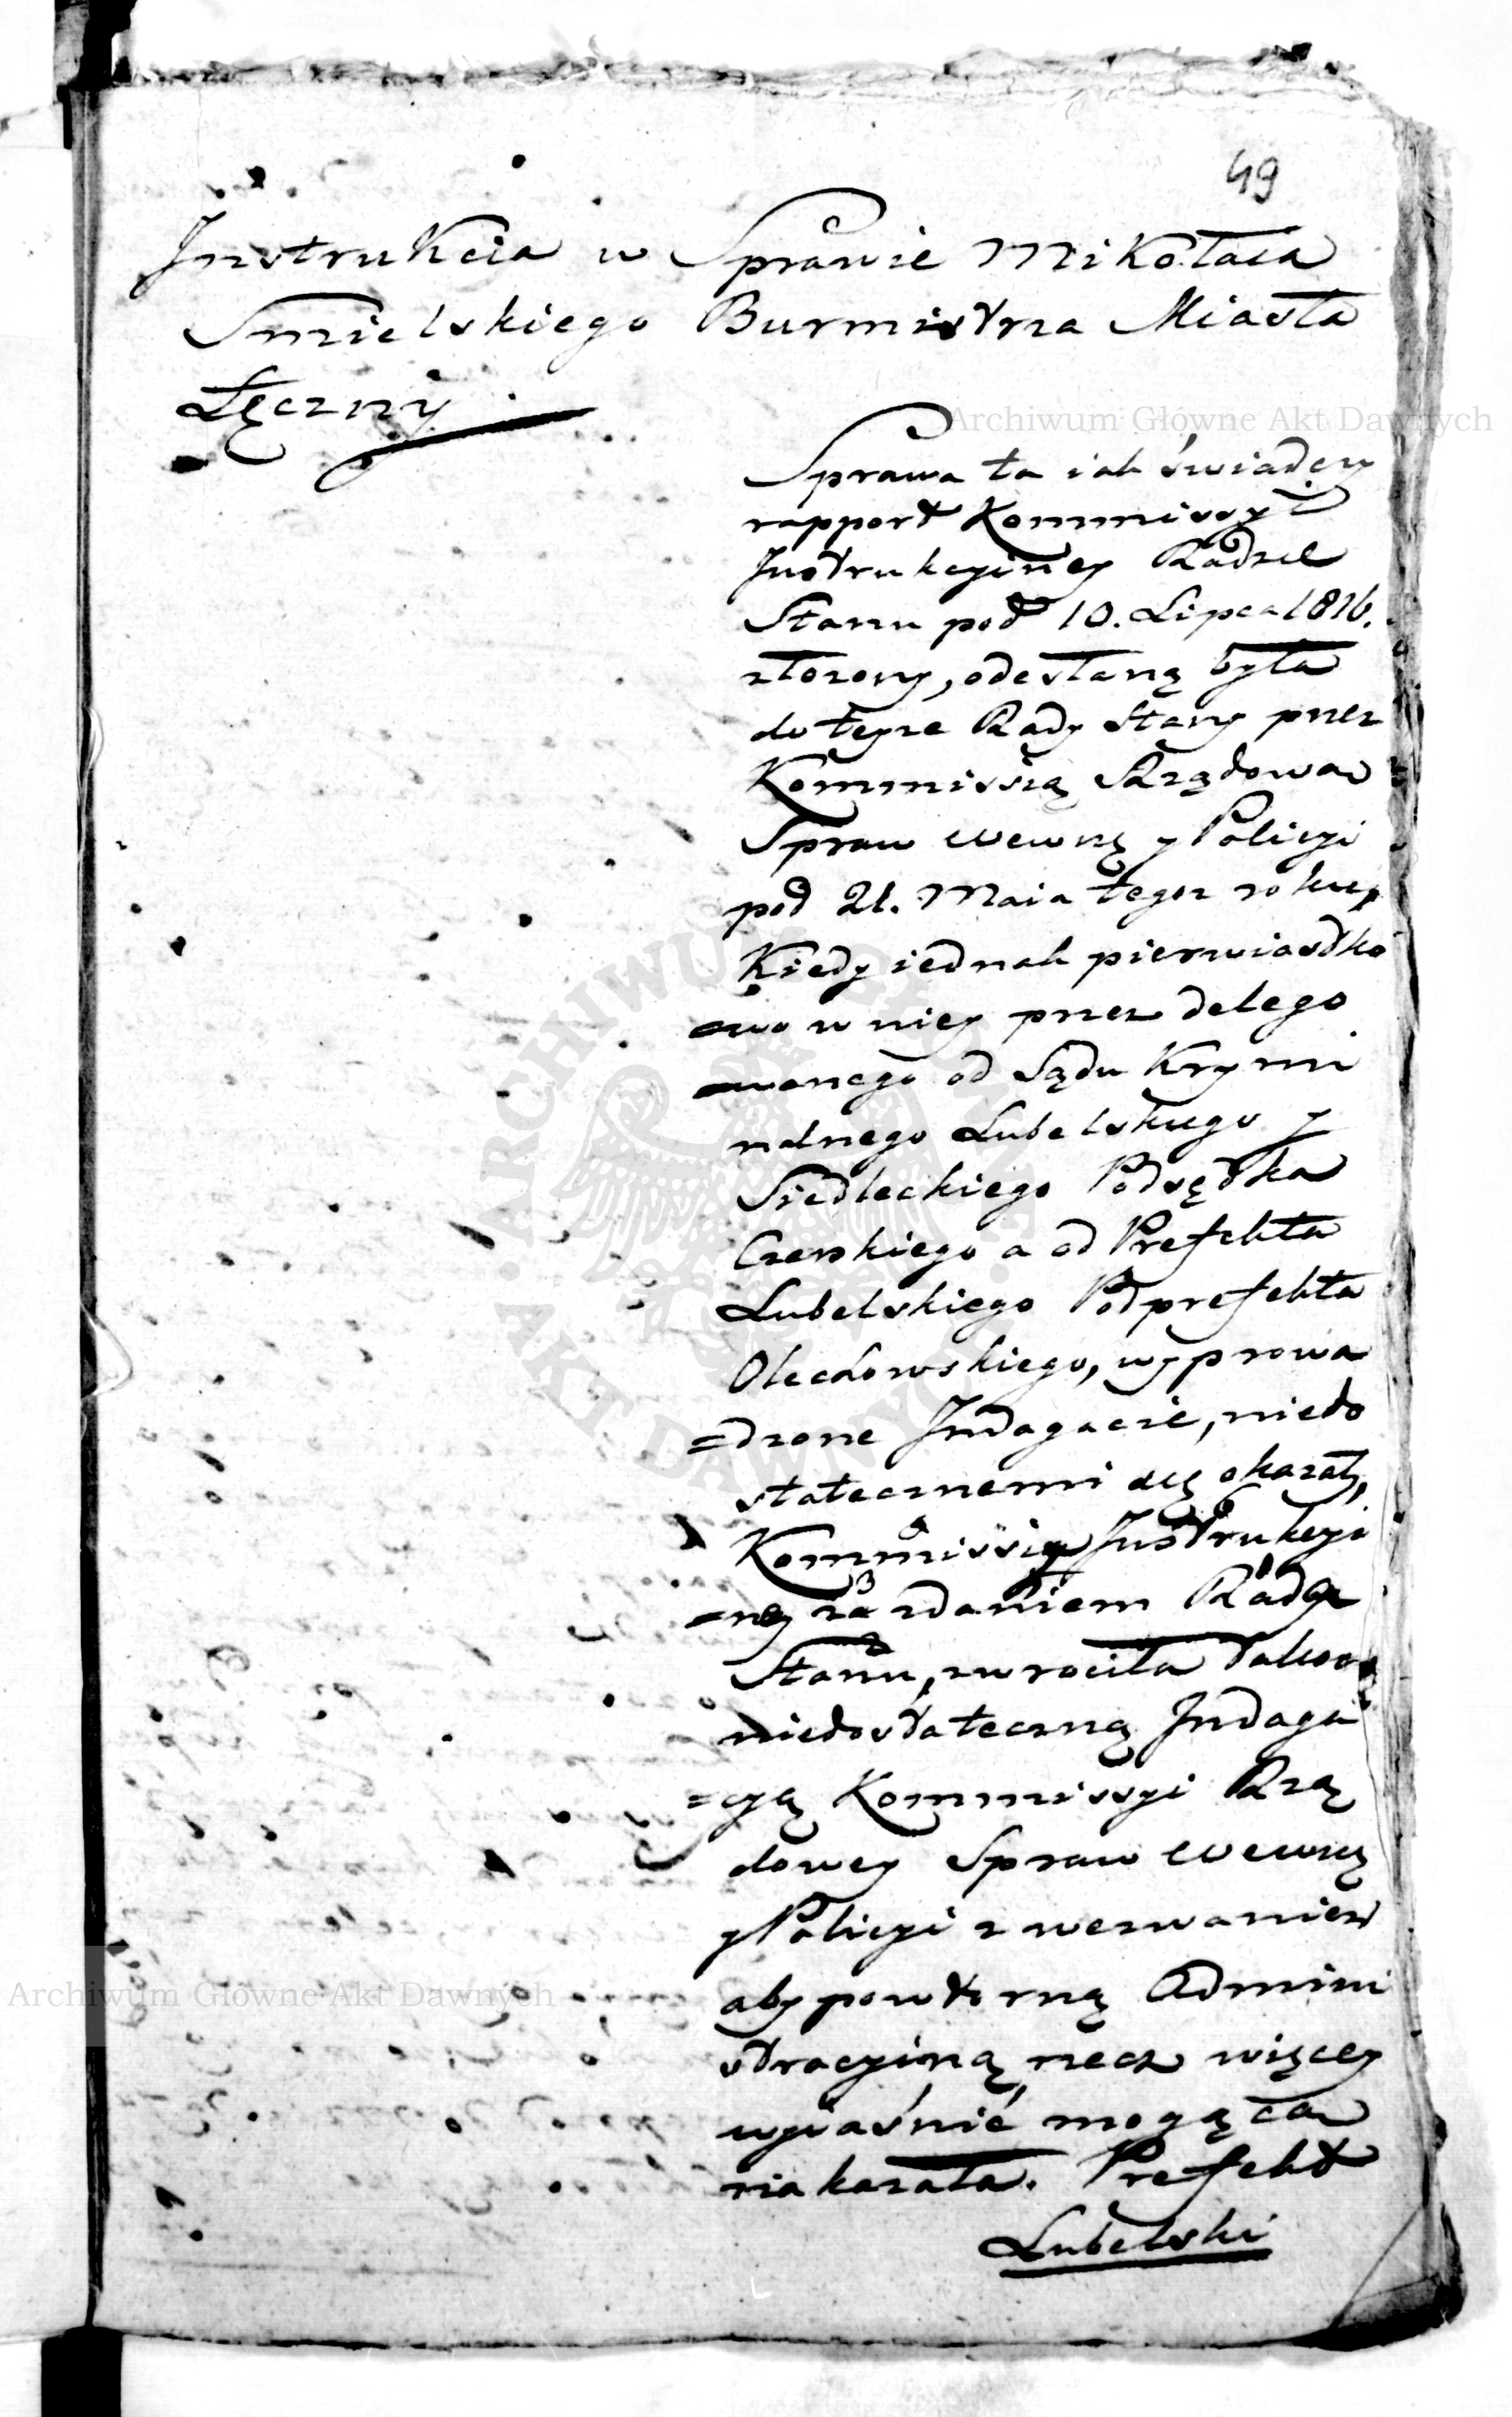 49
Instrukcia w Sprawie Mikołaia
Smielskiego Burmistrza Miasta
Łęczny
Archiwum Główne Akt Dawnych
Sprawa ta iak świadczy
rapport Kommissyi
Instrukcyiney Radzie
Stanu pod 10. Lipca 1816.
złożony, odesłaną była
do teyże Rady Stanu przez
Kommissią Rządowa
Spraw Wewnę y Policyi
pod 21. Maia tegoz roku,
Kiedy iednak pierwiastko
=wo w niey przez delego
=wanego od Sądu Krymi
nalnego Lubelskiego y
Siedleckiego Podsędka
Czerskiego a od Prefekta
Lubelskiego Podprefekta
Olechowskiego, wyprowa
=dzone Indagacie, niedo
statecznemi się okazały,
Kommissia Instrukcyi
=na za zdaniem Rady
Stanu, zwrociła takową
niedostateczną Indaga
=cyą Kommissyi Rzą
dowey Spraw Wewnę
y Policyi z wezwaniem
aby powtorną Admini
stracyiną, rzecz więcey
wyiaśnić mogąca
nakazała. Prefekt
Lubelski
Archiwum Główne Akt Dawnych
ARCHIWUM GŁÓWNE · AKT DAWNYCH ·